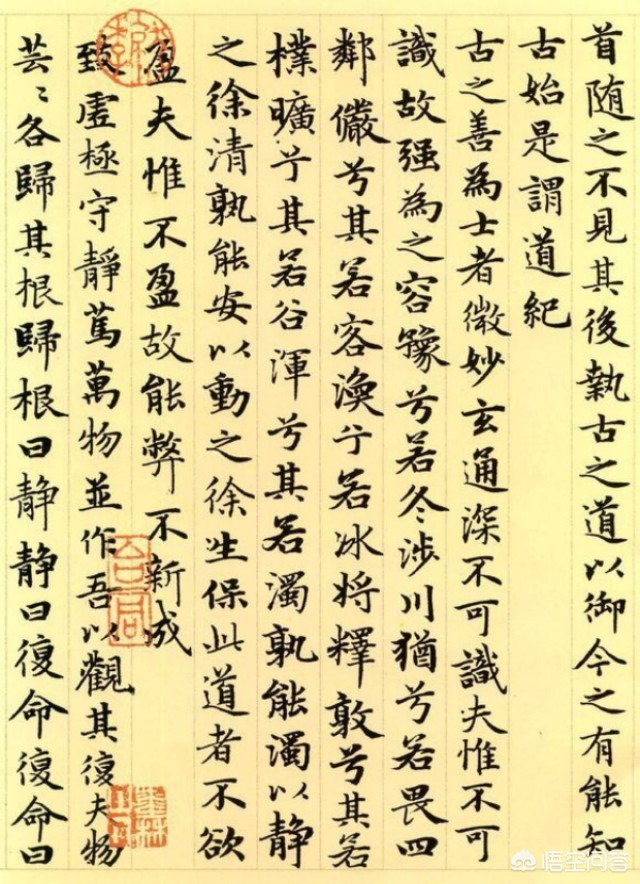 首随之不見其後執古之道以御今之有能知
古始是謂道紀
古之善為士者微妙玄通深不可識夫惟不可
識故强為之容豫兮若冬涉川猶兮若畏四
鄰儼兮其若客渙兮若冰將釋敦兮其若
樸曠兮其若谷渾兮其若濁孰能濁以靜
之徐清孰能安以動之徐生保此道者不欲
盈夫惟不盈故能弊不新成
致虛極守靜篤萬物並作吾以觀其復夫物
芸〻各歸其根歸根曰静静曰復命復命曰
悟空问答